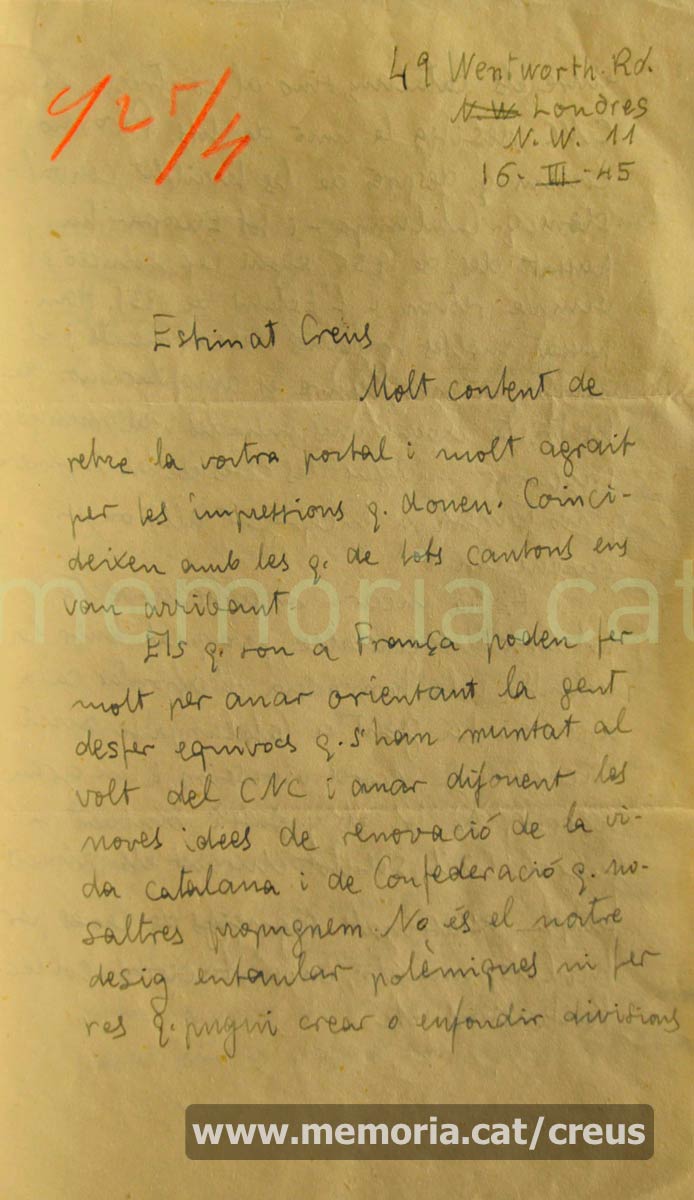 925/4
49 Wentworth. Rd.
N.W. Londres
N.W. 11
16-III-45
Estimat Creus
Molt content de
rebre la vostra postal i molt agrait
per les impressions q. donen. Coinci-
deixen amb les q. de tots cantons ens
van arribant.
Els q. son a França poden fer
molt per anar orientant la gent
desfer equívocs q. s'han muntat al
volt del CNC i anar difonent les
noves idees de renovació de la vi-
da catalana i de Confederació q. no-
saltres propugnem. No és el nostre
desig entaular polèmiques ni fer
res q. pugui crear o enfondir divisions
memoria.cat
www.memoria.cat/creus